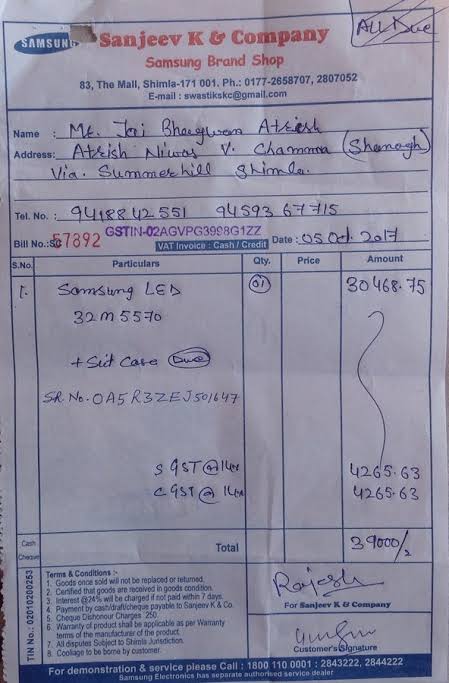 ALL Due
SAMSUNG Sanjeev K & Company
Samsung Brand Shop
83, The Mall, Shimla-171 001. Ph.: 0177-2658707, 2807052
E-mail : swastikskc@gmail.com
Name : Mr. Jai Bhagwan Atrish
Address: Atrish Niwas V. Chamma (Shanagh)
Via. Summerhill Shimla.
Tel. No. : 9418842551 94593 67715
GSTIN-02AGVPG3998G1ZZ
Bill No.: 57892 VAT Invoice : Cash / Credit Date : 05 Oct. 2017
S.No. Particulars Qty. Price Amount
1. Samsung LED 01 30468.75
32M5570
+ Suit Case Due
SR. No. 0A5R3ZEJ501647
SGST @ 14% 4265.63
CGST @ 14% 4265.63
Cash
Cheque
Total 39000/-
TIN No.: 02010200253
Terms & Conditions :-
1. Goods once sold will not be replaced or returned.
2. Certified that goods are received in goods condition.
3. Interest @24% will be charged if not paid within 7 days.
4. Payment by cash/draft/cheque payable to Sanjeev K & Co.
5. Cheque Dishonour Charges 250.
6. Warranty of product shall be applicable as per Warranty
terms of the manufacturer of the product.
7. All disputes Subject to Shimla Jurisdiction.
8. Coollage to be borne by customer.
Rajesh
For Sanjeev K & Company
Customer's Signature
For demonstration & service please Call : 1800 110 0001 : 2843222, 2844222
Samsung Electronics has separate authorised service dealer